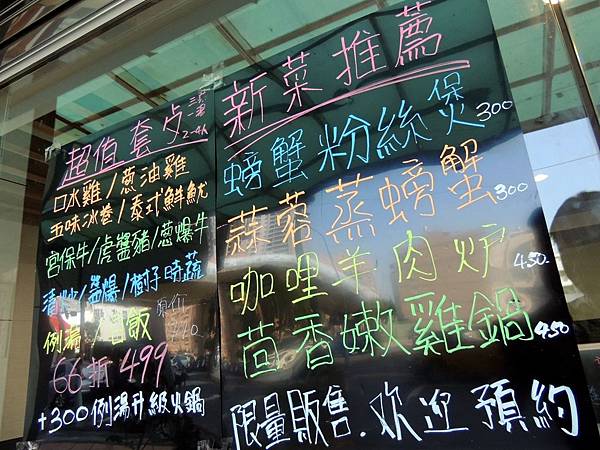 超值套夕
三菜一湯
2-4人
口水雞/蔥油雞
五味冰卷/泰式鮮魷
宮保牛/虎醬豬/蔥爆牛
清炒/醬爆/樹子時蔬
例湯/白飯
原价
66折499
+300例湯升級火鍋
新菜推薦
螃蟹粉絲煲300
蒜蓉蒸螃蟹300
咖哩羊肉炉450-
茴香嫩雞鍋450
限量販售.欢迎預約